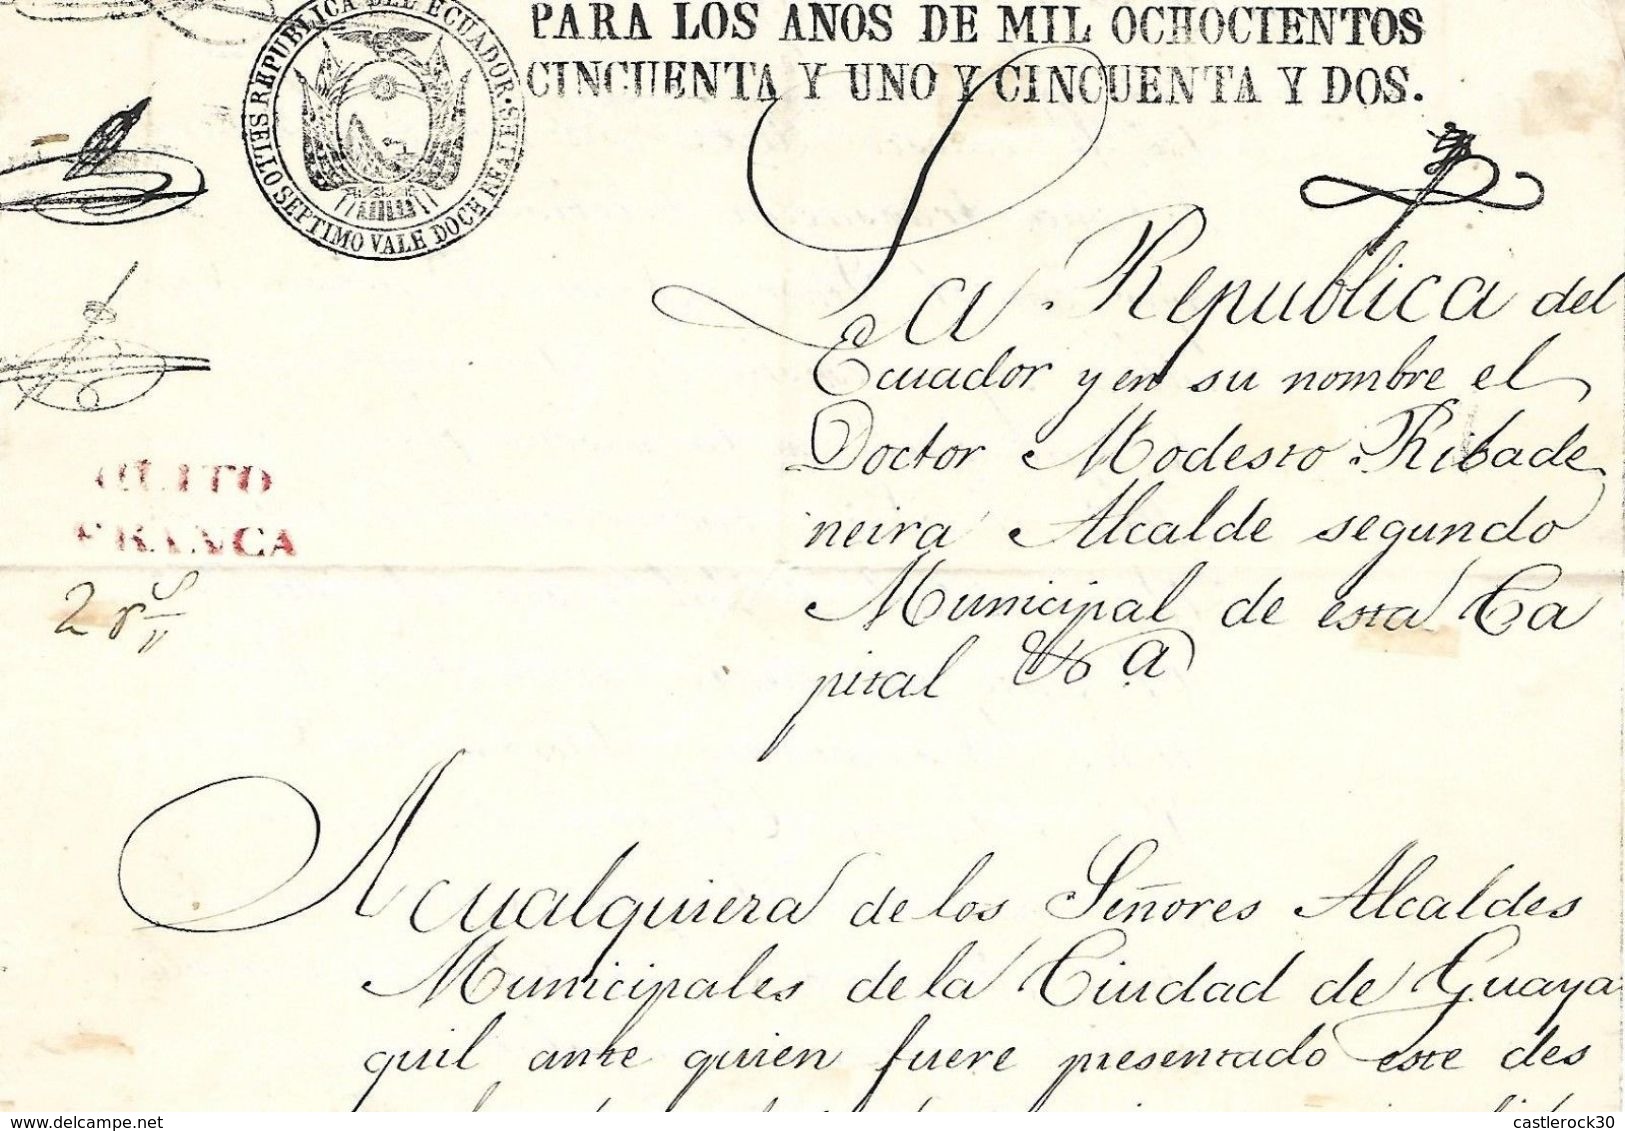 PARA LOS AÑOS DE MIL OCHOCIENTOS
CINCUENTA Y UNO Y CINCUENTA Y DOS.
REPUBLICA DEL ECUADOR · SELLO SEPTIMO VALE DOCE REALES
La Republica del
Ecuador y en su nombre el
Doctor Modesto Ribade
neira Alcalde segundo
Municipal de esta Ca
pital &a
QUITO
FRANCA
2 rs
A cualquiera de los Señores Alcaldes
Municipales de la Ciudad de Guaya
quil ante quien fuere presentado este des
www.delcampe.net
castlerock30